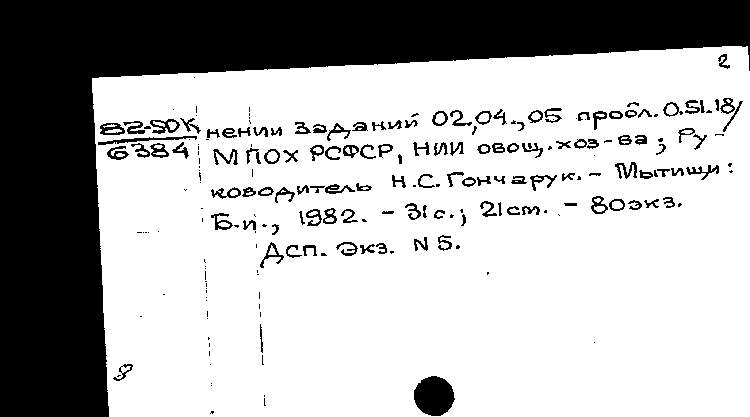 2
82-5ДК
6384
нении заданий 02,04.,05 пробл. 0.51.18/
МПОХ РСФСР, НИИ овощ. хоз-ва; Ру-
ководитель Н.С. Гончарук. - Мытищи:
Б.и., 1982. - 31с.; 21cm. - 80экз.
Дсп. Экз. N 5.